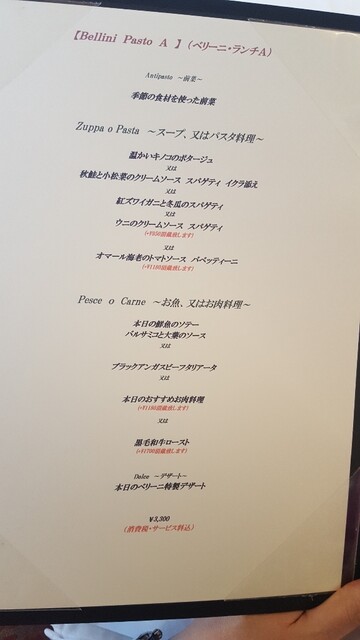 【Bellini Pasto A 】(ベリーニ・ランチA)
Antipasto ～前菜～
季節の食材を使った前菜
Zuppa o Pasta ～スープ、又はパスタ料理～
温かいキノコのポタージュ
又は
秋鮭と小松菜のクリームソース スパゲティ イクラ添え
又は
紅ズワイガニと冬瓜のスパゲティ
又は
ウニのクリームソース スパゲティ
又は
オマール海老のトマトソース パベッティーニ
Pesce o Carne ～お魚、又はお肉料理～
本日の鮮魚のソテー
バルサミコと大葉のソース
又は
ブラックアンガスビーフタリアータ
又は
本日のおすすめお肉料理
又は
黒毛和牛ロースト
Dolce ～デザート～
本日のベリーニ特製デザート
¥3,300
(消費税・サービス料込)